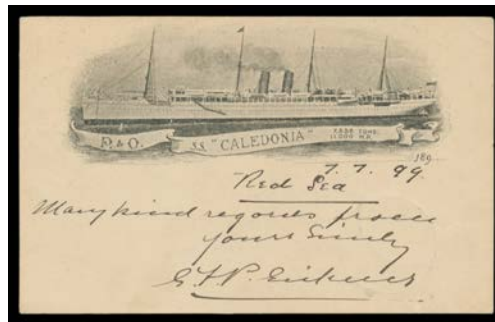 P. & O. S.S. "CALEDONIA" 7,558 TONS. 11,000 H.P.
189
7.7.99
Red Sea
Many kind regards from
yours